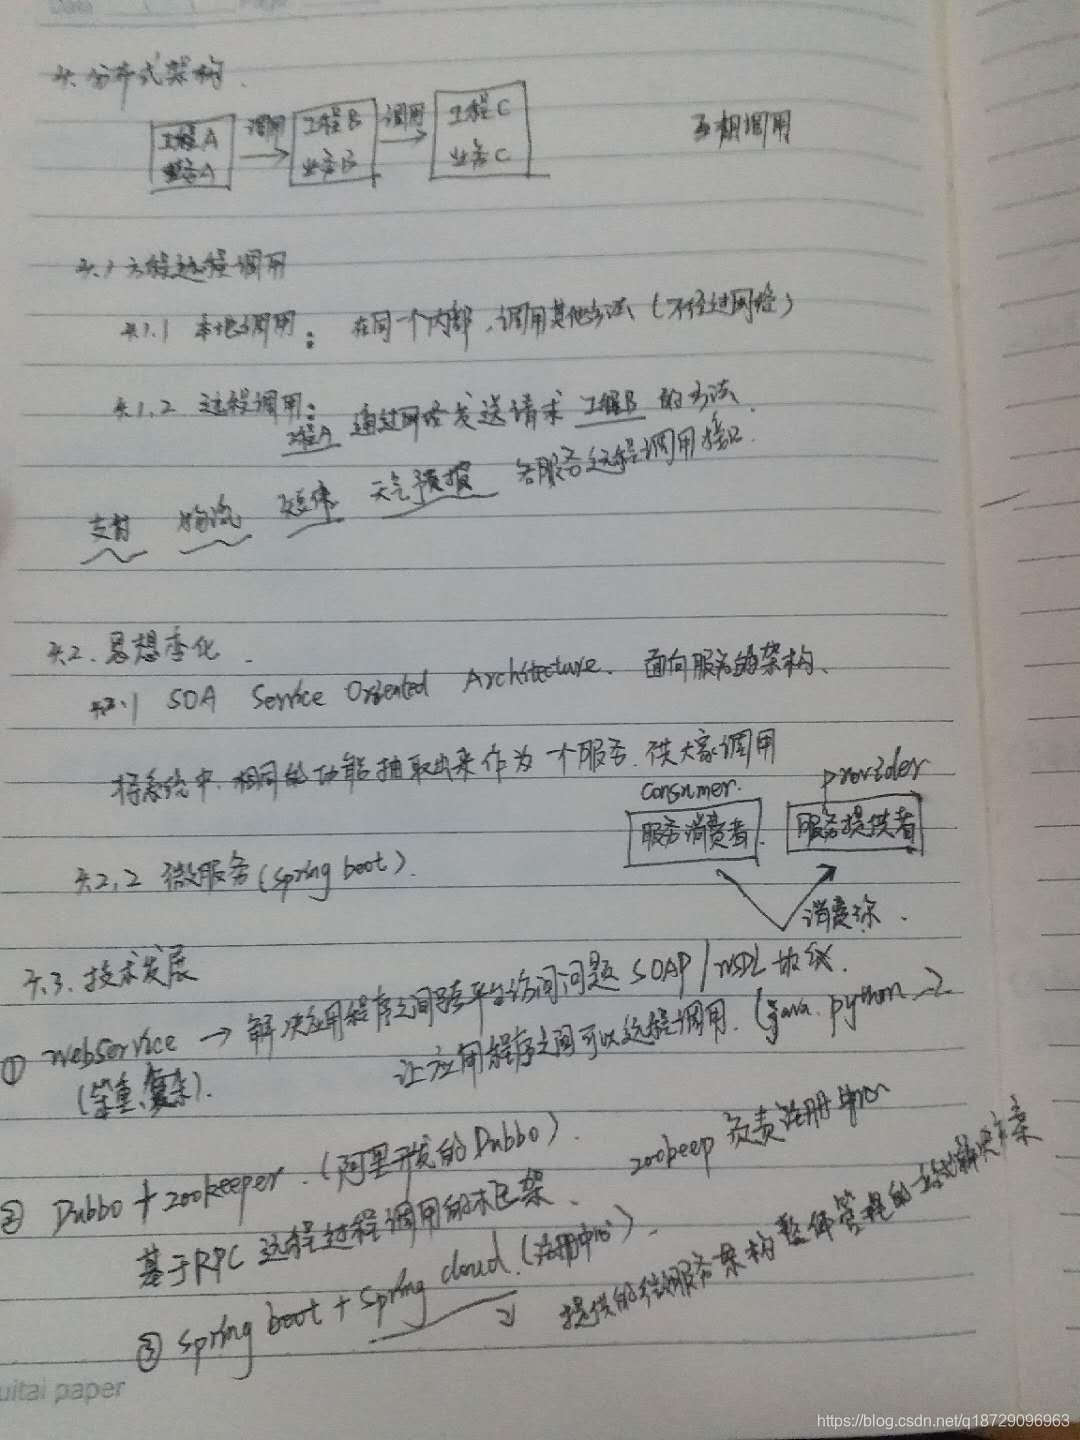 4. 分布式架构.
工程A 调用 工程B 调用 工程C 互相调用
业务A 业务B 业务C
4.1 方程远程调用
4.1.1 本地调用: 在同一个内部,调用其他方法(不经过网络)
4.1.2 远程调用: 工程A 通过网络发送请求 工程B 的方法.
支付 物流 天气预报 各服务远程调用接口.
4.2. 思想变化.
4.2.1 SOA Service Oriented Architecture. 面向服务的架构、
将系统中.相同的功能抽取出来作为一个服务.供大家调用
consumer. provider
服务消费者. 服务提供者
4.2.2 微服务(spring boot).
消费
4.3. 技术发展
① WebService → 解决应用程序之间跨平台访问问题 SOAP/WSDL 协议.
(笨重、复杂). 让应用程序之间可以远程调用.(java. python
② Dubbo + zookeeper.(阿里开发的Dubbo). zookeep 负责注册中心
基于RPC 远程过程调用的框架、
③ spring boot + spring cloud.(注册中心). 提供的微服务架构整体管理的一站式解决方案
uitai paper
https://blog.csdn.net/q18729096963